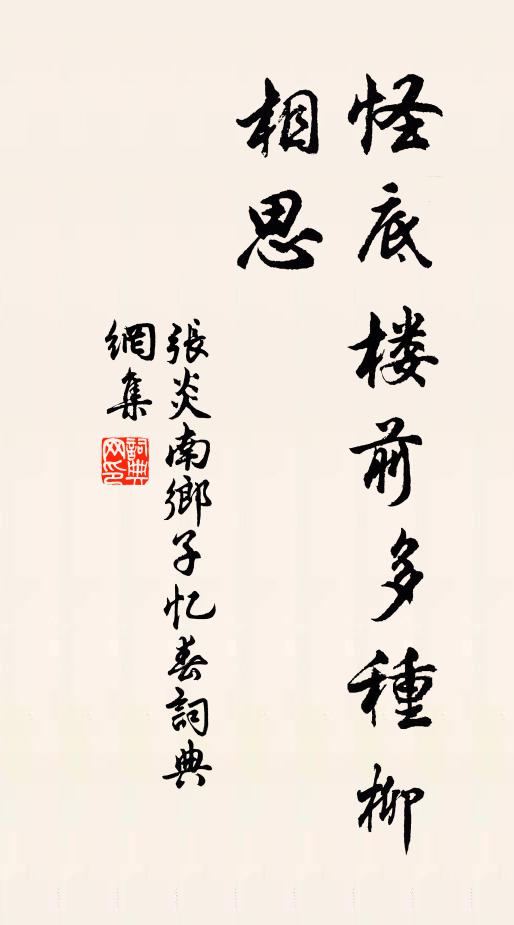 怪底楼前多種柳
相思
張炎南鄉子忆春詞典
網集
詞典
网印